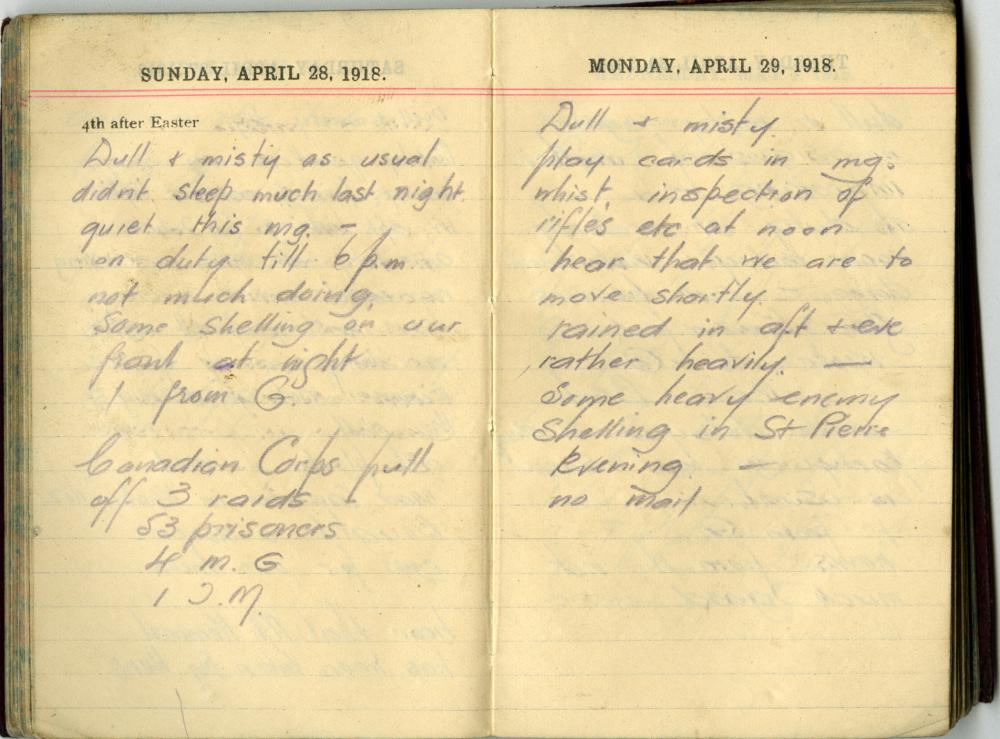 SUNDAY, APRIL 28, 1918.
4th after Easter
Dull & misty as usual
didn't sleep much last night.
quiet this mg. –
on duty till 6 p.m.
not much doing.
Some shelling on our
front at night
1 from G.
Canadian Corps pull
off 3 raids –
53 prisoners
4 M. G
1 T.M.
MONDAY, APRIL 29, 1918.
Dull & misty.
play cards in mg.
whist. inspection of
rifles etc at noon
hear that we are to
move shortly.
rained in aft & eve
rather heavily. —
Some heavy enemy
shelling in St Pierre
Evening. —
no mail